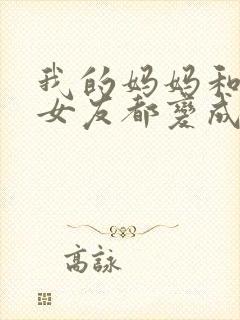 我的妈妈和
女友都变成
高詠